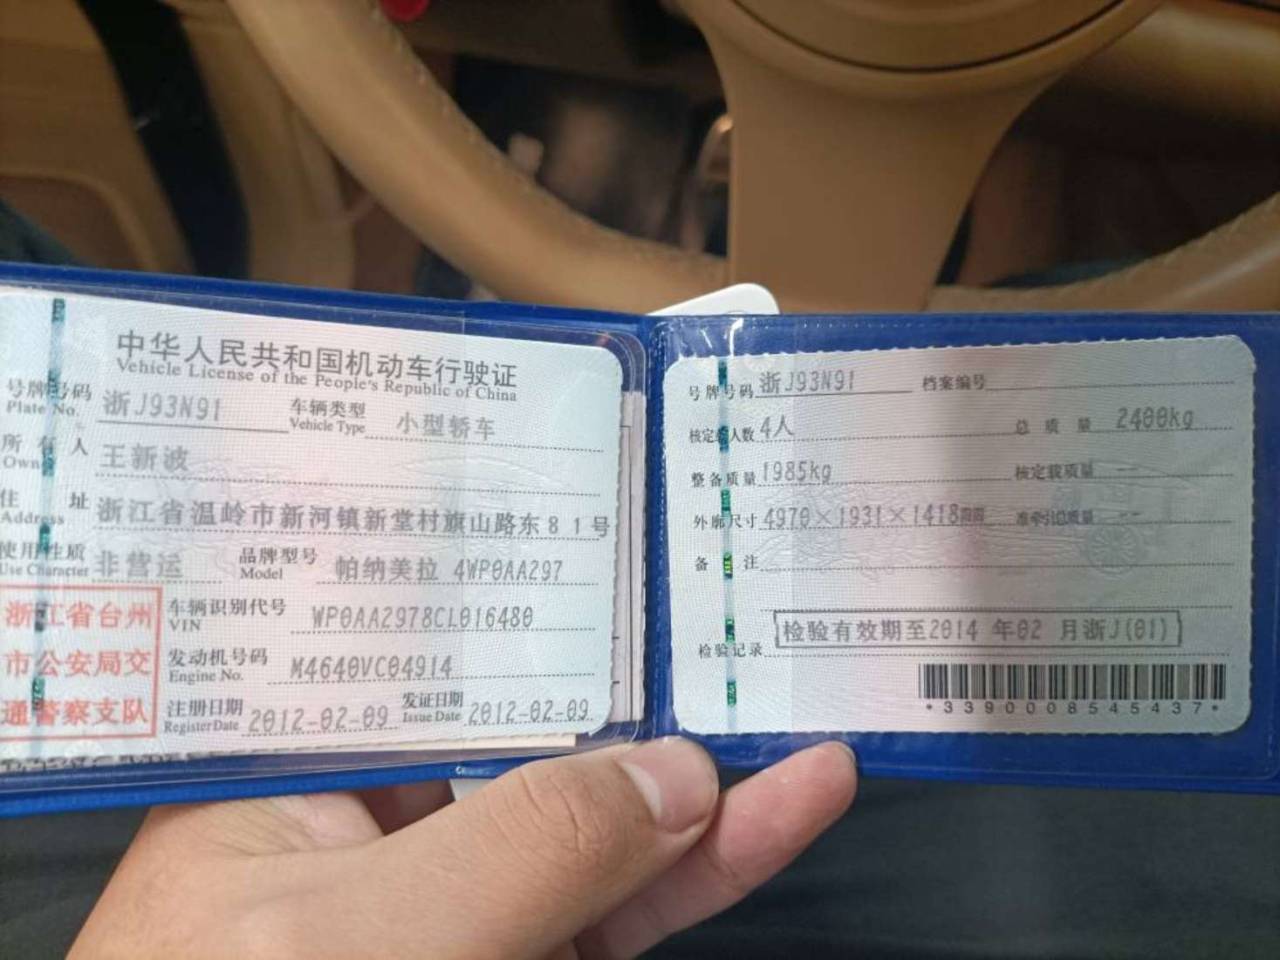 中华人民共和国机动车行驶证
Vehicle License of the People's Republic of China
号牌号码 浙J93N91 车辆类型 小型轿车
Plate No. Vehicle Type
所有人 王新波
Owner
住址 浙江省温岭市新河镇新堂村旗山路东81号
Address
使用性质 非营运 品牌型号 帕纳美拉 4WP0AA297
Use Character Model
浙江省台州
市公安局交
通警察支队
车辆识别代号 WP0AA2978CL016480
VIN
发动机号码 M4640VC04914
Engine No.
注册日期 2012-02-09 发证日期 2012-02-09
Register Date Issue Date
号牌号码 浙J93N91 档案编号
核定 人数 4人 总质量 2400kg
整备质量 1985kg 核定载质量 --
外廓尺寸 4970×1931×1418 准牵引总质量 --
备注
检验有效期至2014 年02 月浙J(01)
检验记录
*3390008545437*